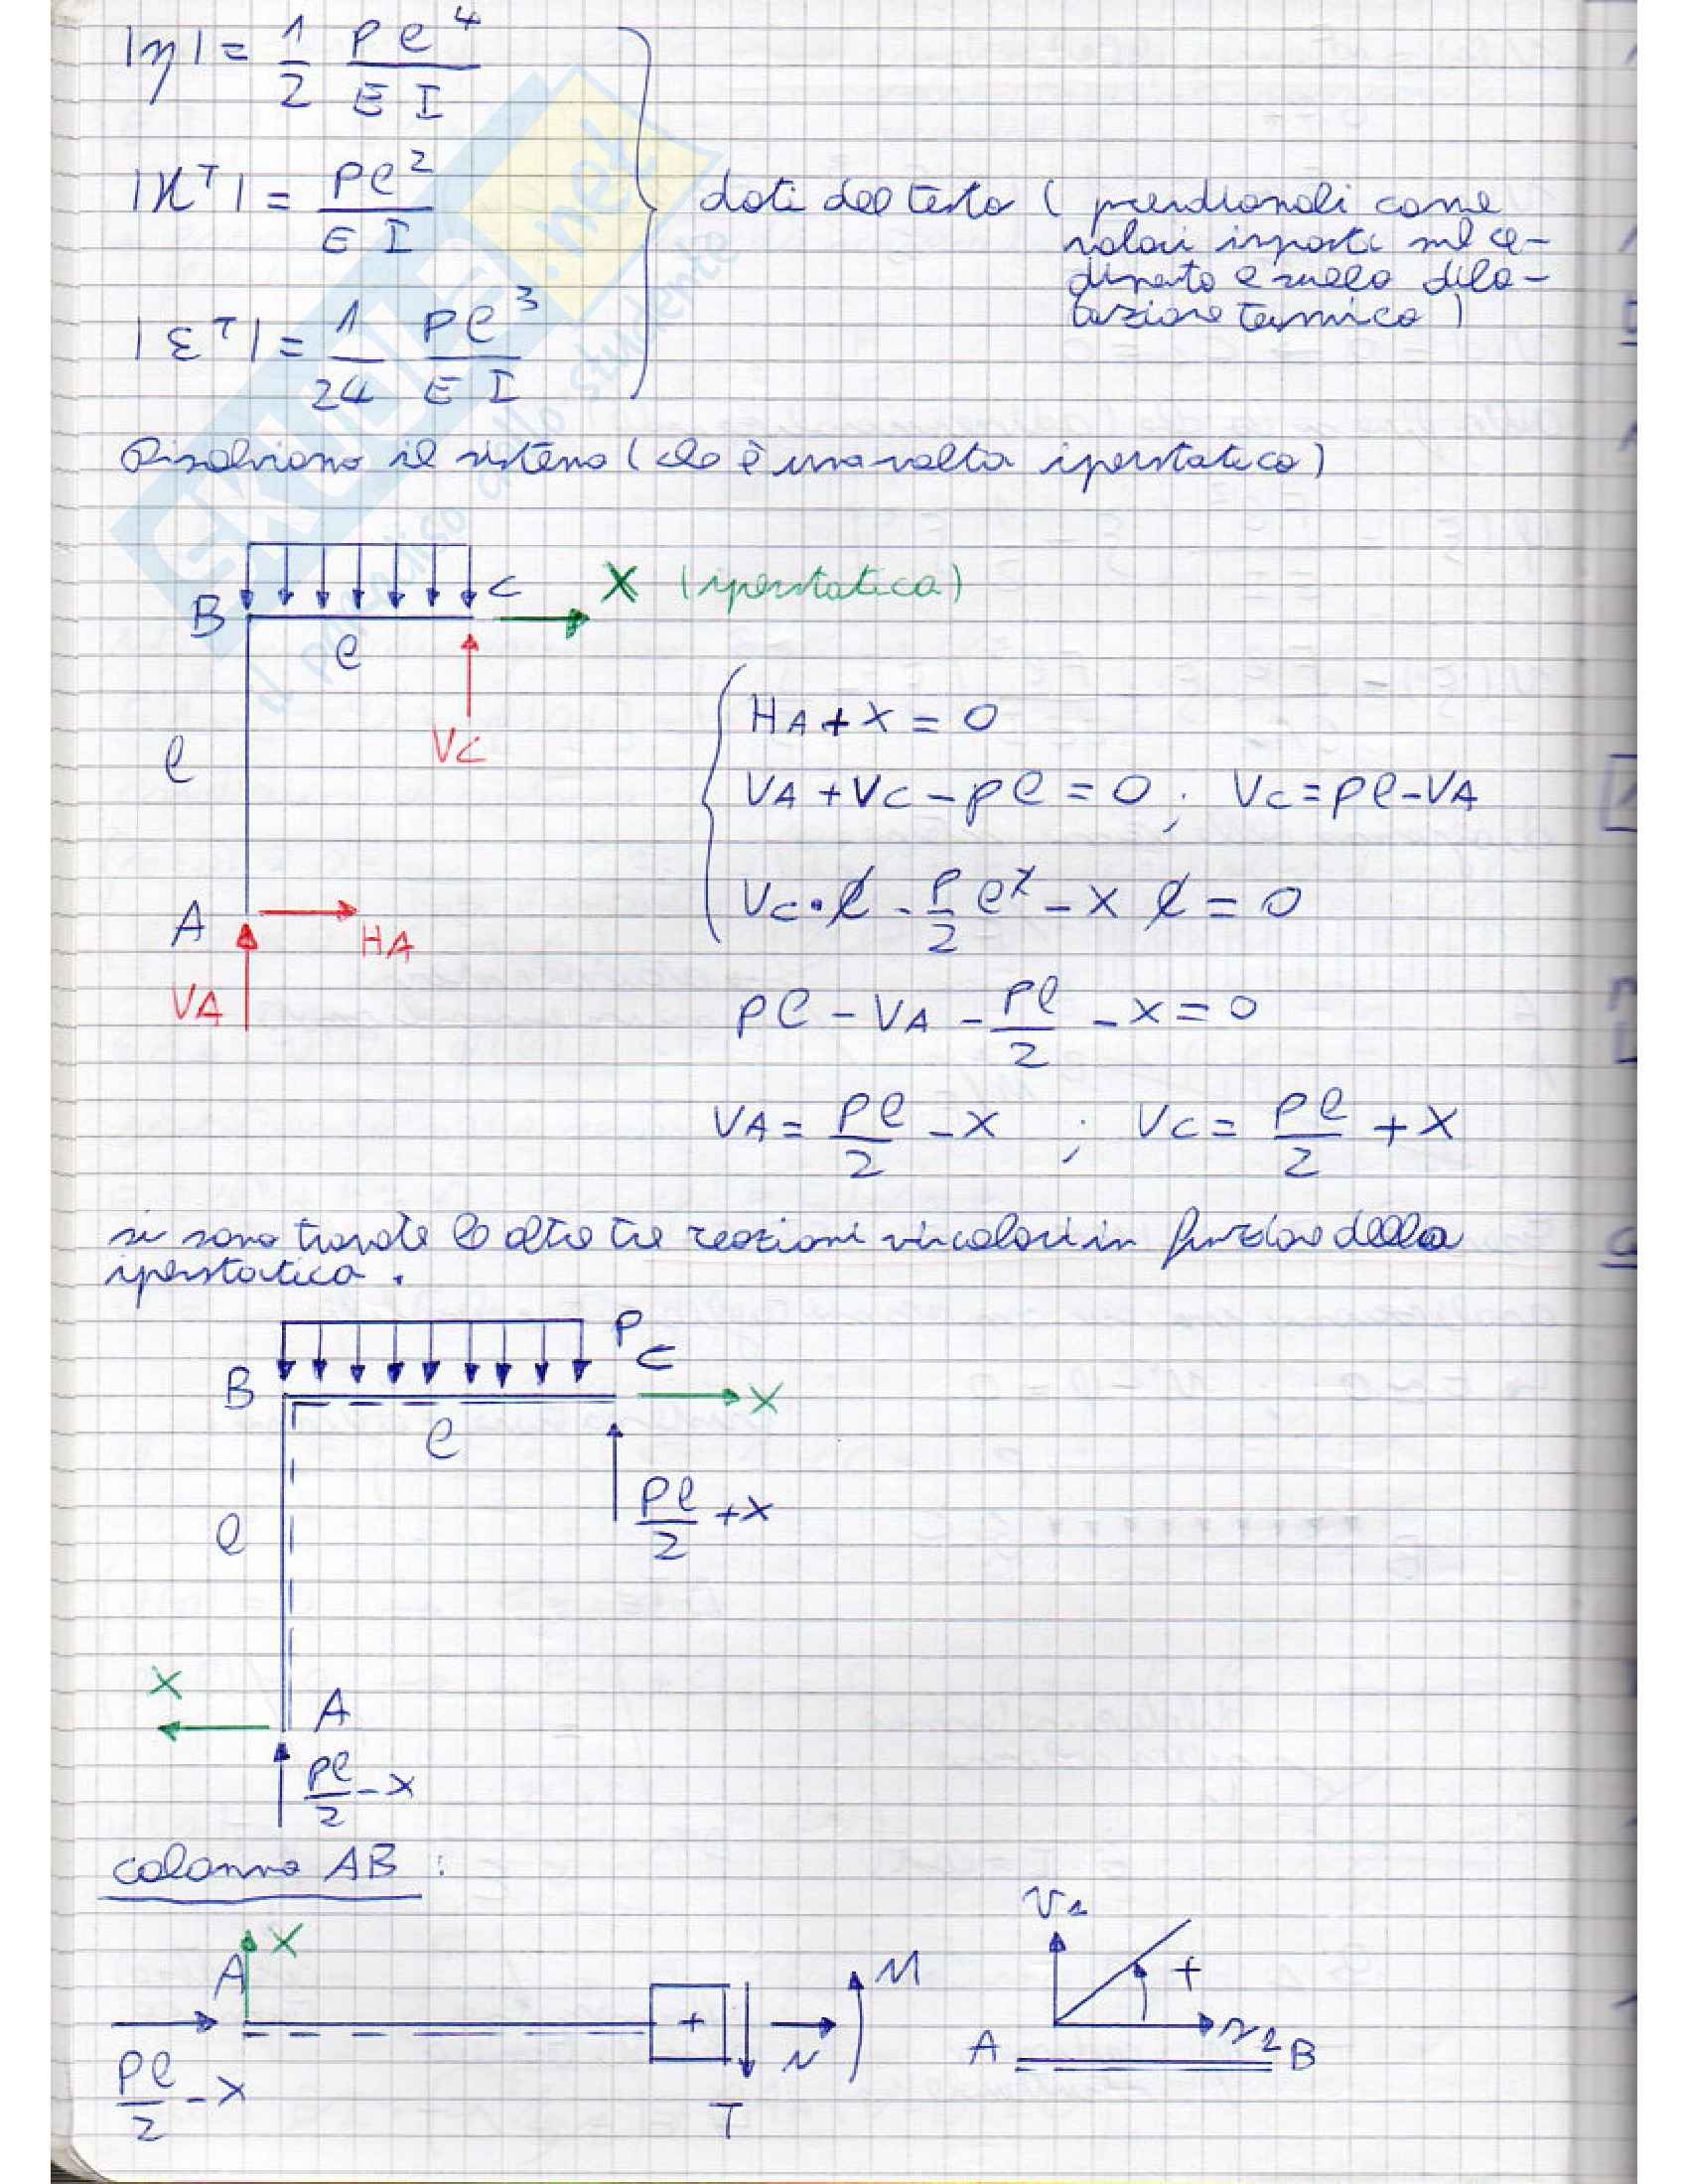 |η| = 1/2 Pl⁴/EI
|χᵀ| = Pl²/EI
|εᵀ| = 1/24 Pl³/EI
dati del testo ( prendianoli come
valori imposti sul ce-
dimento e sulla dila-
tazione termica )
Risolviamo il sistema ( che è una volta iperstatico )
B
C
X (iperstatica)
l
VC
l
A
HA
VA
HA + X = 0
VA + VC - pl = 0 ; VC = pl - VA
VC · l - P/2 l² - X l = 0
Pl - VA - Pl/2 - X = 0
VA = Pl/2 - X ; VC = Pl/2 + X
si sono trovate le altre tre reazioni vincolari in funzione della
iperstatica .
P
B
C
X
l
Pl/2 + X
l
X
A
Pl/2 - X
colonna AB :
A
X
+
M
N
T
Pl/2 - X
+
A
B
SKUOLA.net
il paradiso dello studente